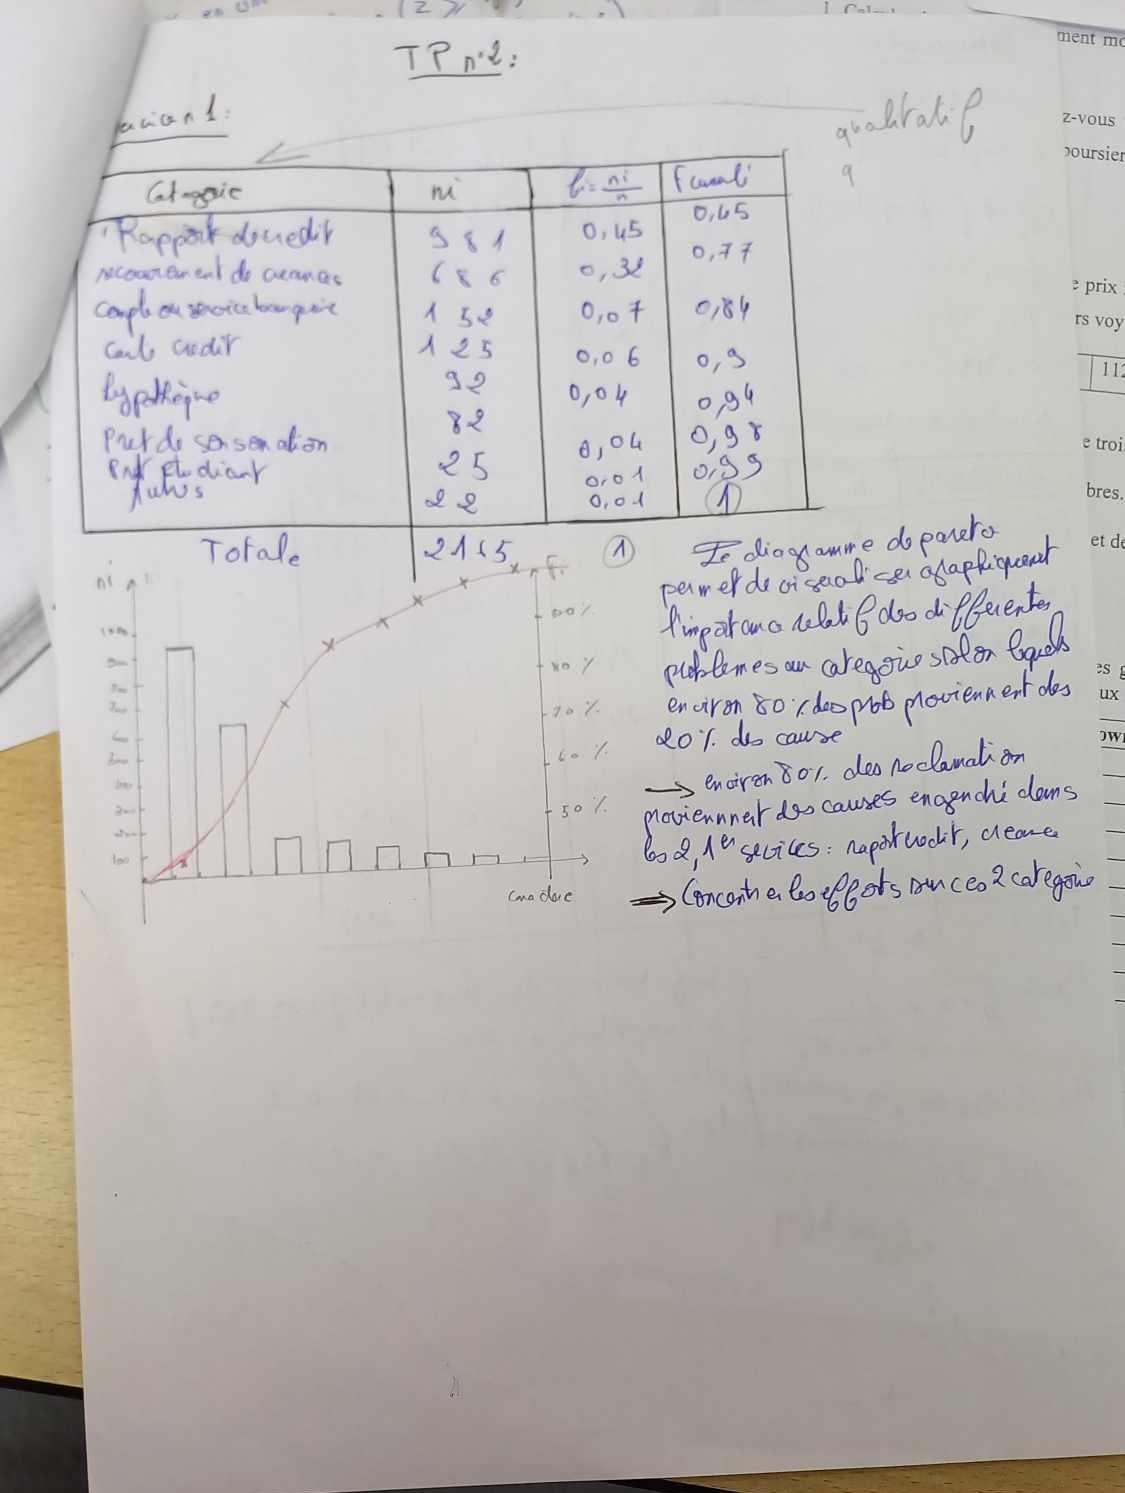 TP n°2:
n 1:
qualitatif
Categorie ni fi = ni/n F cumuli
Rapport de credit 981 0,45 0,45
recouvrement de creances 686 0,32 0,77
Compte ou service banquaire 152 0,07 0,84
Carte credit 125 0,06 0,9
hypothèque 92 0,04 0,94
Pret de consonation 82 0,04 0,98
Pret Etudiant 25 0,01 0,99
Autres 22 0,01 1
Totale 2165 1
Le diagramme de pareto
permet de visualiser graphiquement
l'importance relatif des differentes
problemes ou categorie selon lequels
environ 80% des prob proviennent des
20% des cause
→ environ 80% des reclamation
proviennent des causes engendré dans
les 2, 1er sevices: raport credit, creance
⇒ Concentrer les efforts sur ces 2 categorie
ni
Fi
1000
100
80%
70%
60%
50%
ment mo
z-vous
boursier
e prix
rs voy
112
e troi
bres.
et de
es g
ux